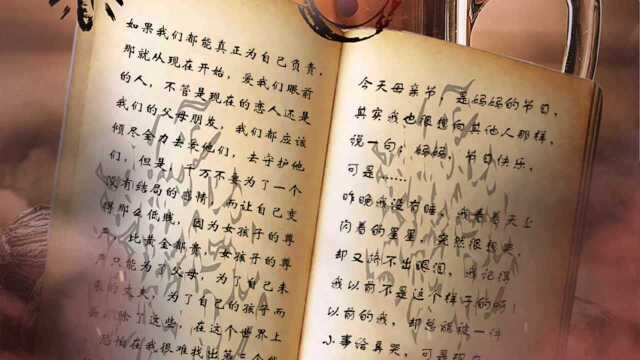 如果我们都能真正为自己负责，
那就从现在开始，爱我们眼前
的人，不管是现在的恋人还是
我们的父母朋友，我们都应该
倾尽全力去爱他们，去守护他
们，但是，千万不要为了一个
没有结局的感情，而让自己变
得那么低贱，因为女孩子的尊
严，比黄金都贵，女孩子的尊
严只能为了父母，为了自己未
来的丈夫，为了自己的孩子而
除了这些，在这个世界上
恐怕在我很难找出第
今天母亲节，是妈妈的节日，
其实我也很想向其他人那样，
说一句：妈妈，节日快乐，
可是……
昨晚我没有睡，我看着天上
闪着的星星，突然很想哭，
却又流不出眼泪，我记得
我以前不是这个样子的啊！
以前的我，却总能被一件
小事给弄哭，可是